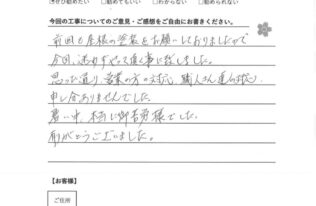 ☑ぜひ勧めたい □勧めてもいい □わからない □勧められない
今回の工事についてのご意見・ご感想をご自由にお書きください。
前回も屋根の塗装をお願いしておりましたので
今回、迷わずやって頂く事に致しました。
思った通り、営業の方の対応、職人さん達の対応
申し分ありませんでした。
暑い中、本当に御苦労様でした。
有がとうございました。
【お客様】
ご住所